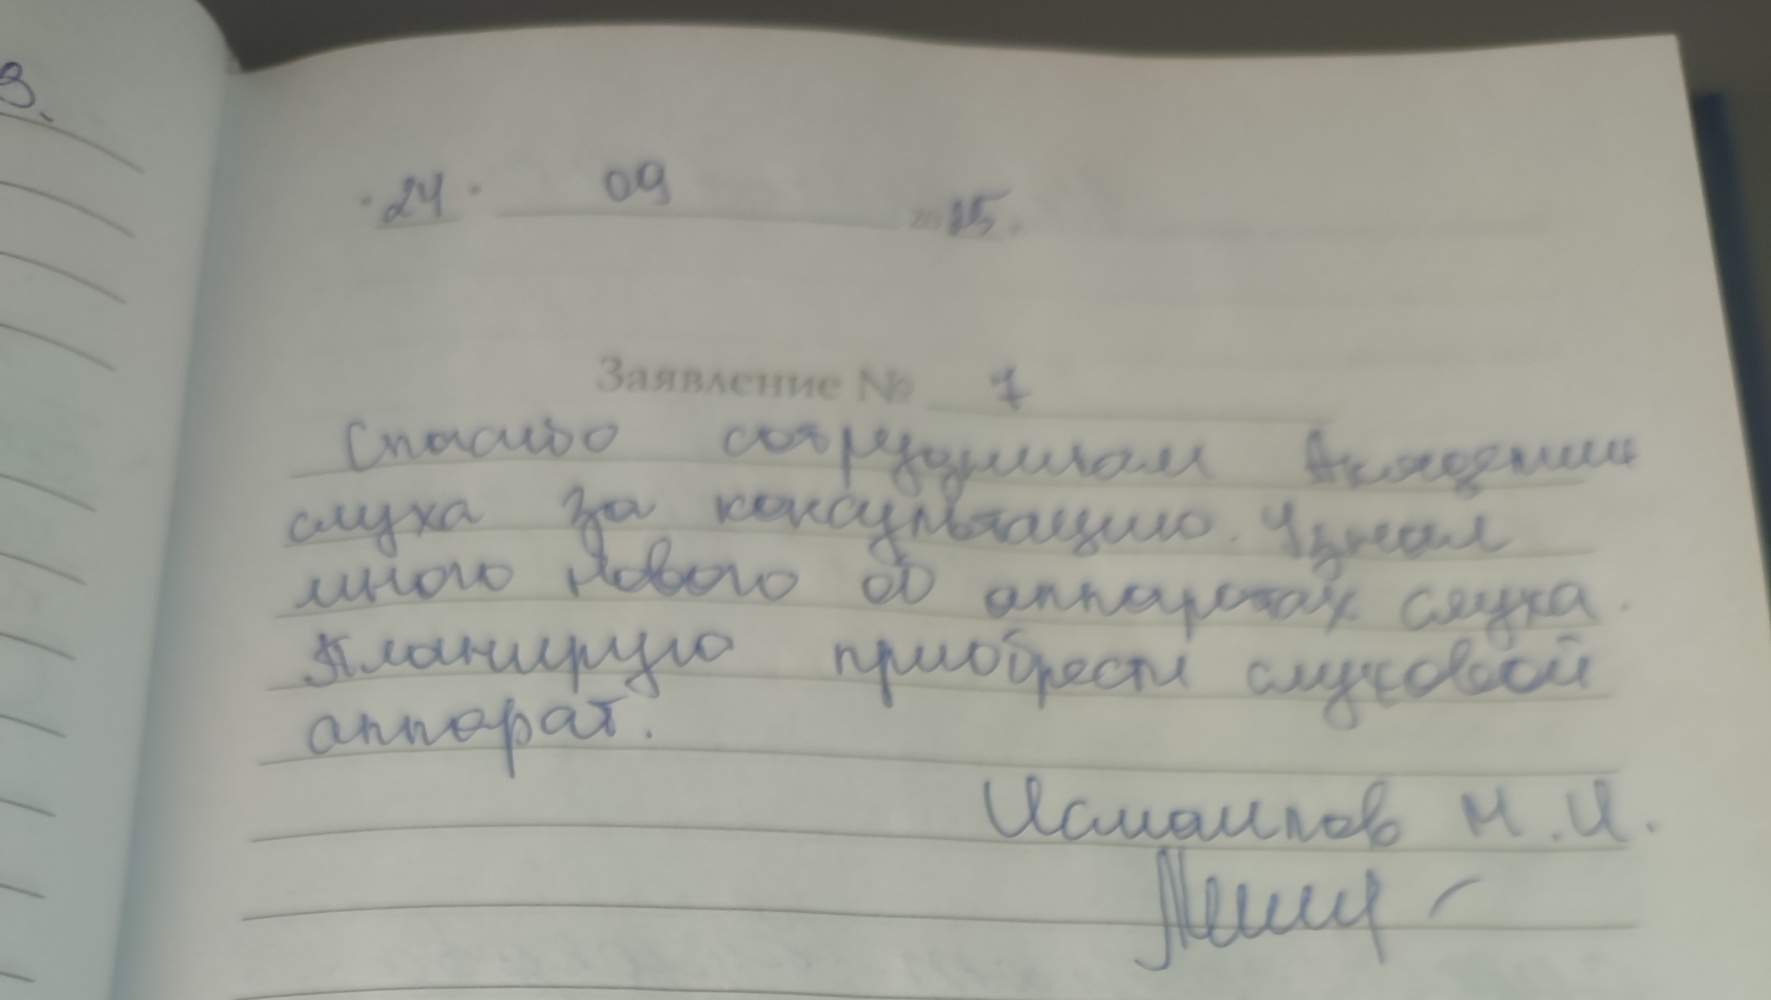 в.
"24" 09 2015.
Заявление № 7
Спасибо сотрудникам Академии
слуха за консультацию. Узнал
много нового об аппаратах слуха.
Планирую приобрести слуховой
аппарат.
Исмаилов М.И.